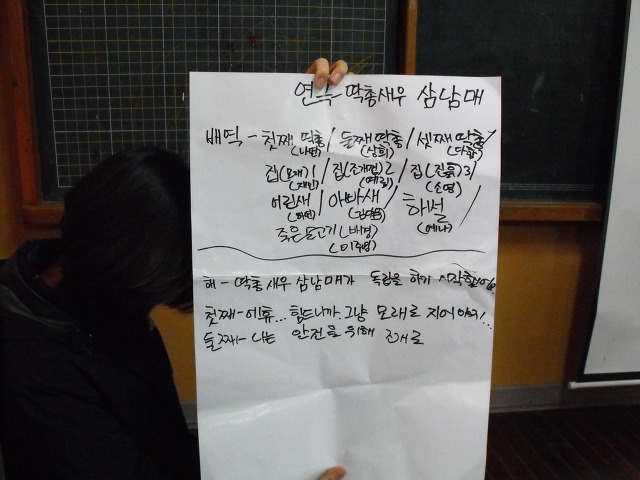 연극 딱총새우 삼남매
배역 - 첫째 딱총 / 둘째 딱총 / 셋째 딱총 /
(나현) (상희)
집(모래)1 / 집(조개껍)2 / 집(진흙)3 /
(재인) (예림) (소영)
어린새 / 아빠새 / 해설 /
(하연) (예나)
죽은 물고기(배경)
해 - 딱총새우 삼남매가 독립을 하기 시작했어요.
첫째 - 에휴... 힘드니까. 그냥 모래로 지어야지!...
둘째 - 나는 안전을 위해 조개로